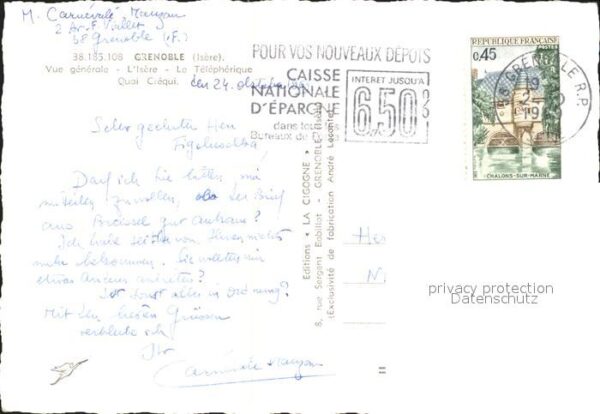 M. Carnevale Mangon
2 Av. F. Viallet
38 Grenoble (F.)
38.185.108 GRENOBLE (Isère).
Vue générale - L'Isère - Le Téléphérique
Quai Créqui.
den 24. Oktober
Sehr geehrter Herr
Darf ich Sie bitten mir
mitteilen zu wollen, ob der Brief
aus Brüssel gut ankam?
Ich habe seither von Ihnen nichts
mehr bekommen. Sie wollten mir
etwas anvertrauen?
Ist sonst alles in Ordnung?
Mit den besten Grüssen
verbleibe ich
Ihr
Carnevale Mangon
POUR VOS NOUVEAUX DÉPOTS
CAISSE
NATIONALE
D'ÉPARGNE
dans tous les
Bureaux de
INTERET JUSQU'A
6.50%
Editions « LA CIGOGNE »
8, rue Sergent Bobillot - GRENOBLE (Isère)
(Exclusivité de fabrication André Leconte)
RÉPUBLIQUE FRANÇAISE
0,45
POSTES
CHALONS-SUR-MARNE
38 GRENOBLE R.P.
19
24-10
19
He
N
privacy protection
Datenschutz